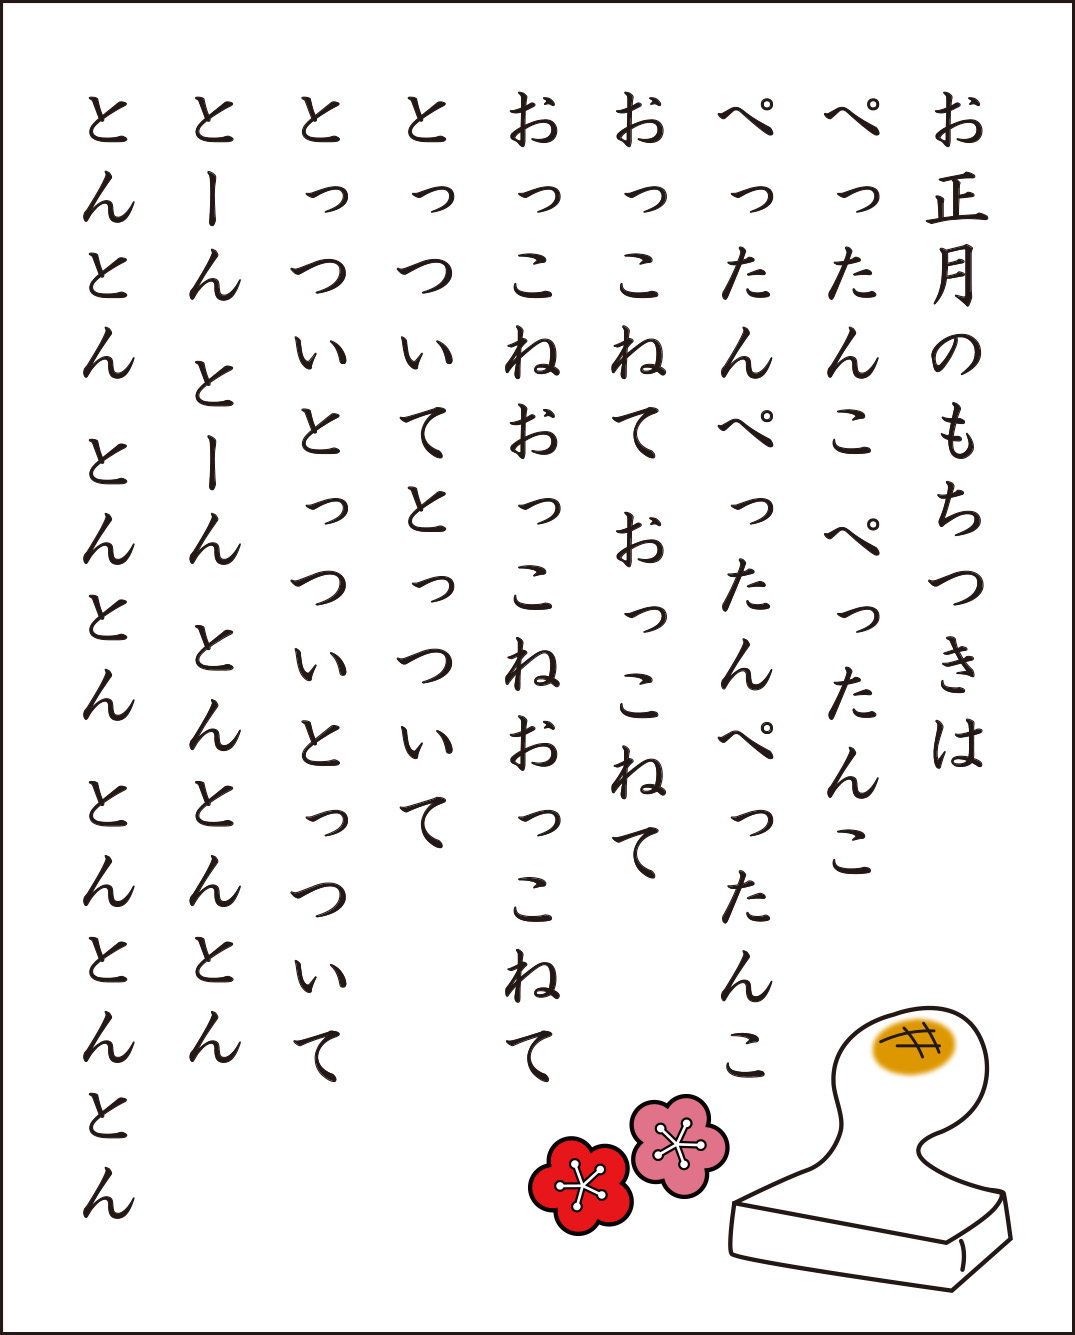 お正月のもちつきは
ぺったんこ ぺったんこ
ぺったんぺったんぺったんこ
おっこねて おっこねて
おっこねおっこねおっこねて
とっついてとっついて
とっついとっついとっついて
とーん とーん とんとんとん
とんとん とんとん とんとんとん